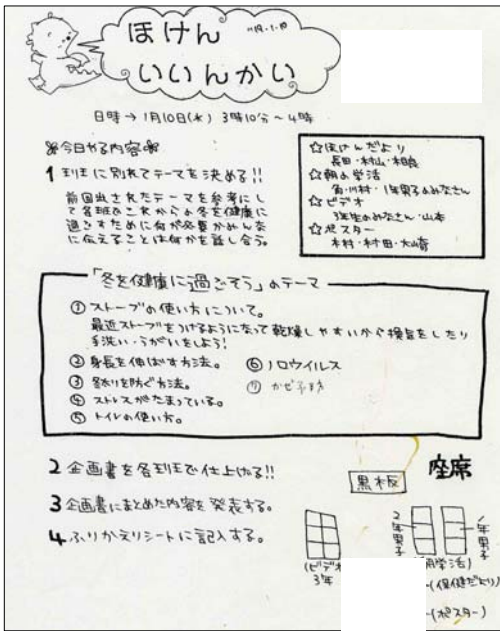 ほけん
いいんかい
日時→1月10日(水) 3時10分～4時
今日やる内容
1 班に別れてテーマを決める!!
前回出されたテーマを参考にし
て各班でこれからの冬を健康に
過ごすために何が必要かみんな
に伝えることは何かを話し合う。
☆ほけんだより
長田・村山・相良
☆朝の学活
角・川村・1年男子のみなさん
☆ビデオ
3年生のみなさん・山本
☆ポスター
木村・村田・大山
「冬を健康に過ごそう」のテーマ
① ストーブの使い方について。
最近ストーブをつけるようになって乾燥しやすいから換気をしたり
手洗い・うがいをしよう!
② 身長を伸ばす方法。
③ 冬太りを防ぐ方法。
④ ストレスがたまっている。
⑤ トイレの使い方。
⑥ ノロウイルス
⑦ かぜ予防
2 企画書を各班で仕上げる!!
3 企画書にまとめた内容を発表する。
4 ふりかえりシートに記入する。
座席
黒板
2年男子
1年男子
(ビデオ
3年
朝学活)
(保健だより)
(ポスター)